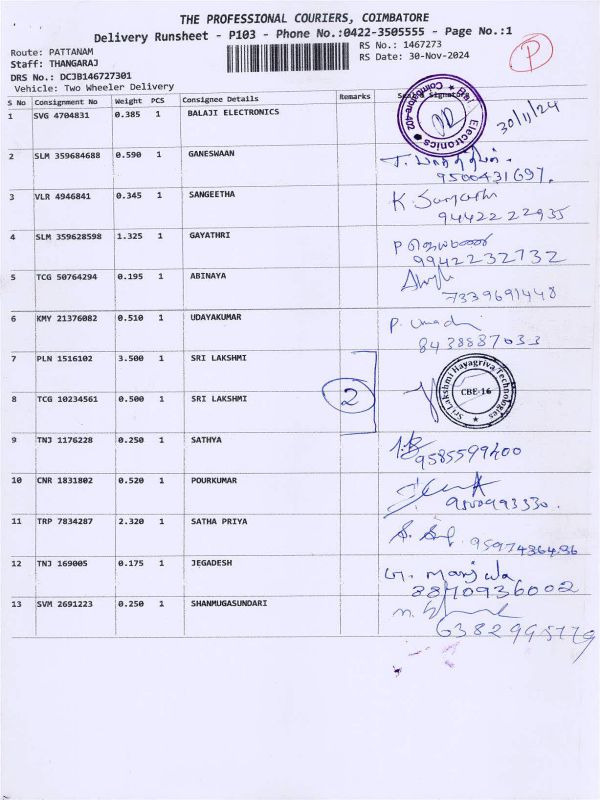 THE PROFESSIONAL COURIERS, COIMBATORE
Delivery Runsheet - P103 - Phone No.:0422-3505555 - Page No.:1
Route: PATTANAM
RS No.: 1467273
Staff: THANGARAJ
RS Date: 30-Nov-2024
DRS No.: DCJB146727301
Vehicle: Two Wheeler Delivery
P
S No Consignment No Weight PCS Consignee Details Remarks
1 SVG 4704831 0.385 1 BALAJI ELECTRONICS
Electronics Coimbatore-402
30/11/24
2 SLM 359684688 0.590 1 GANESWAAN
9500431697.
3 VLR 4946841 0.345 1 SANGEETHA
9442222935
4 SLM 359628598 1.325 1 GAYATHRI
9942232732
5 TCG 50764294 0.195 1 ABINAYA
7339691448
6 KMY 21376082 0.510 1 UDAYAKUMAR
8438887033
7 PLN 1516102 3.500 1 SRI LAKSHMI
2
Sri Lakshmi Hayagriva Technologies
CBE-16
8 TCG 10234561 0.500 1 SRI LAKSHMI
9 TNJ 1176228 0.250 1 SATHYA
9585599400
10 CNR 1831802 0.520 1 POURKUMAR
9500993330.
11 TRP 7834287 2.320 1 SATHA PRIYA
9597436496
12 TNJ 169005 0.175 1 JEGADESH
8870936002
13 SVM 2691223 0.250 1 SHANMUGASUNDARI